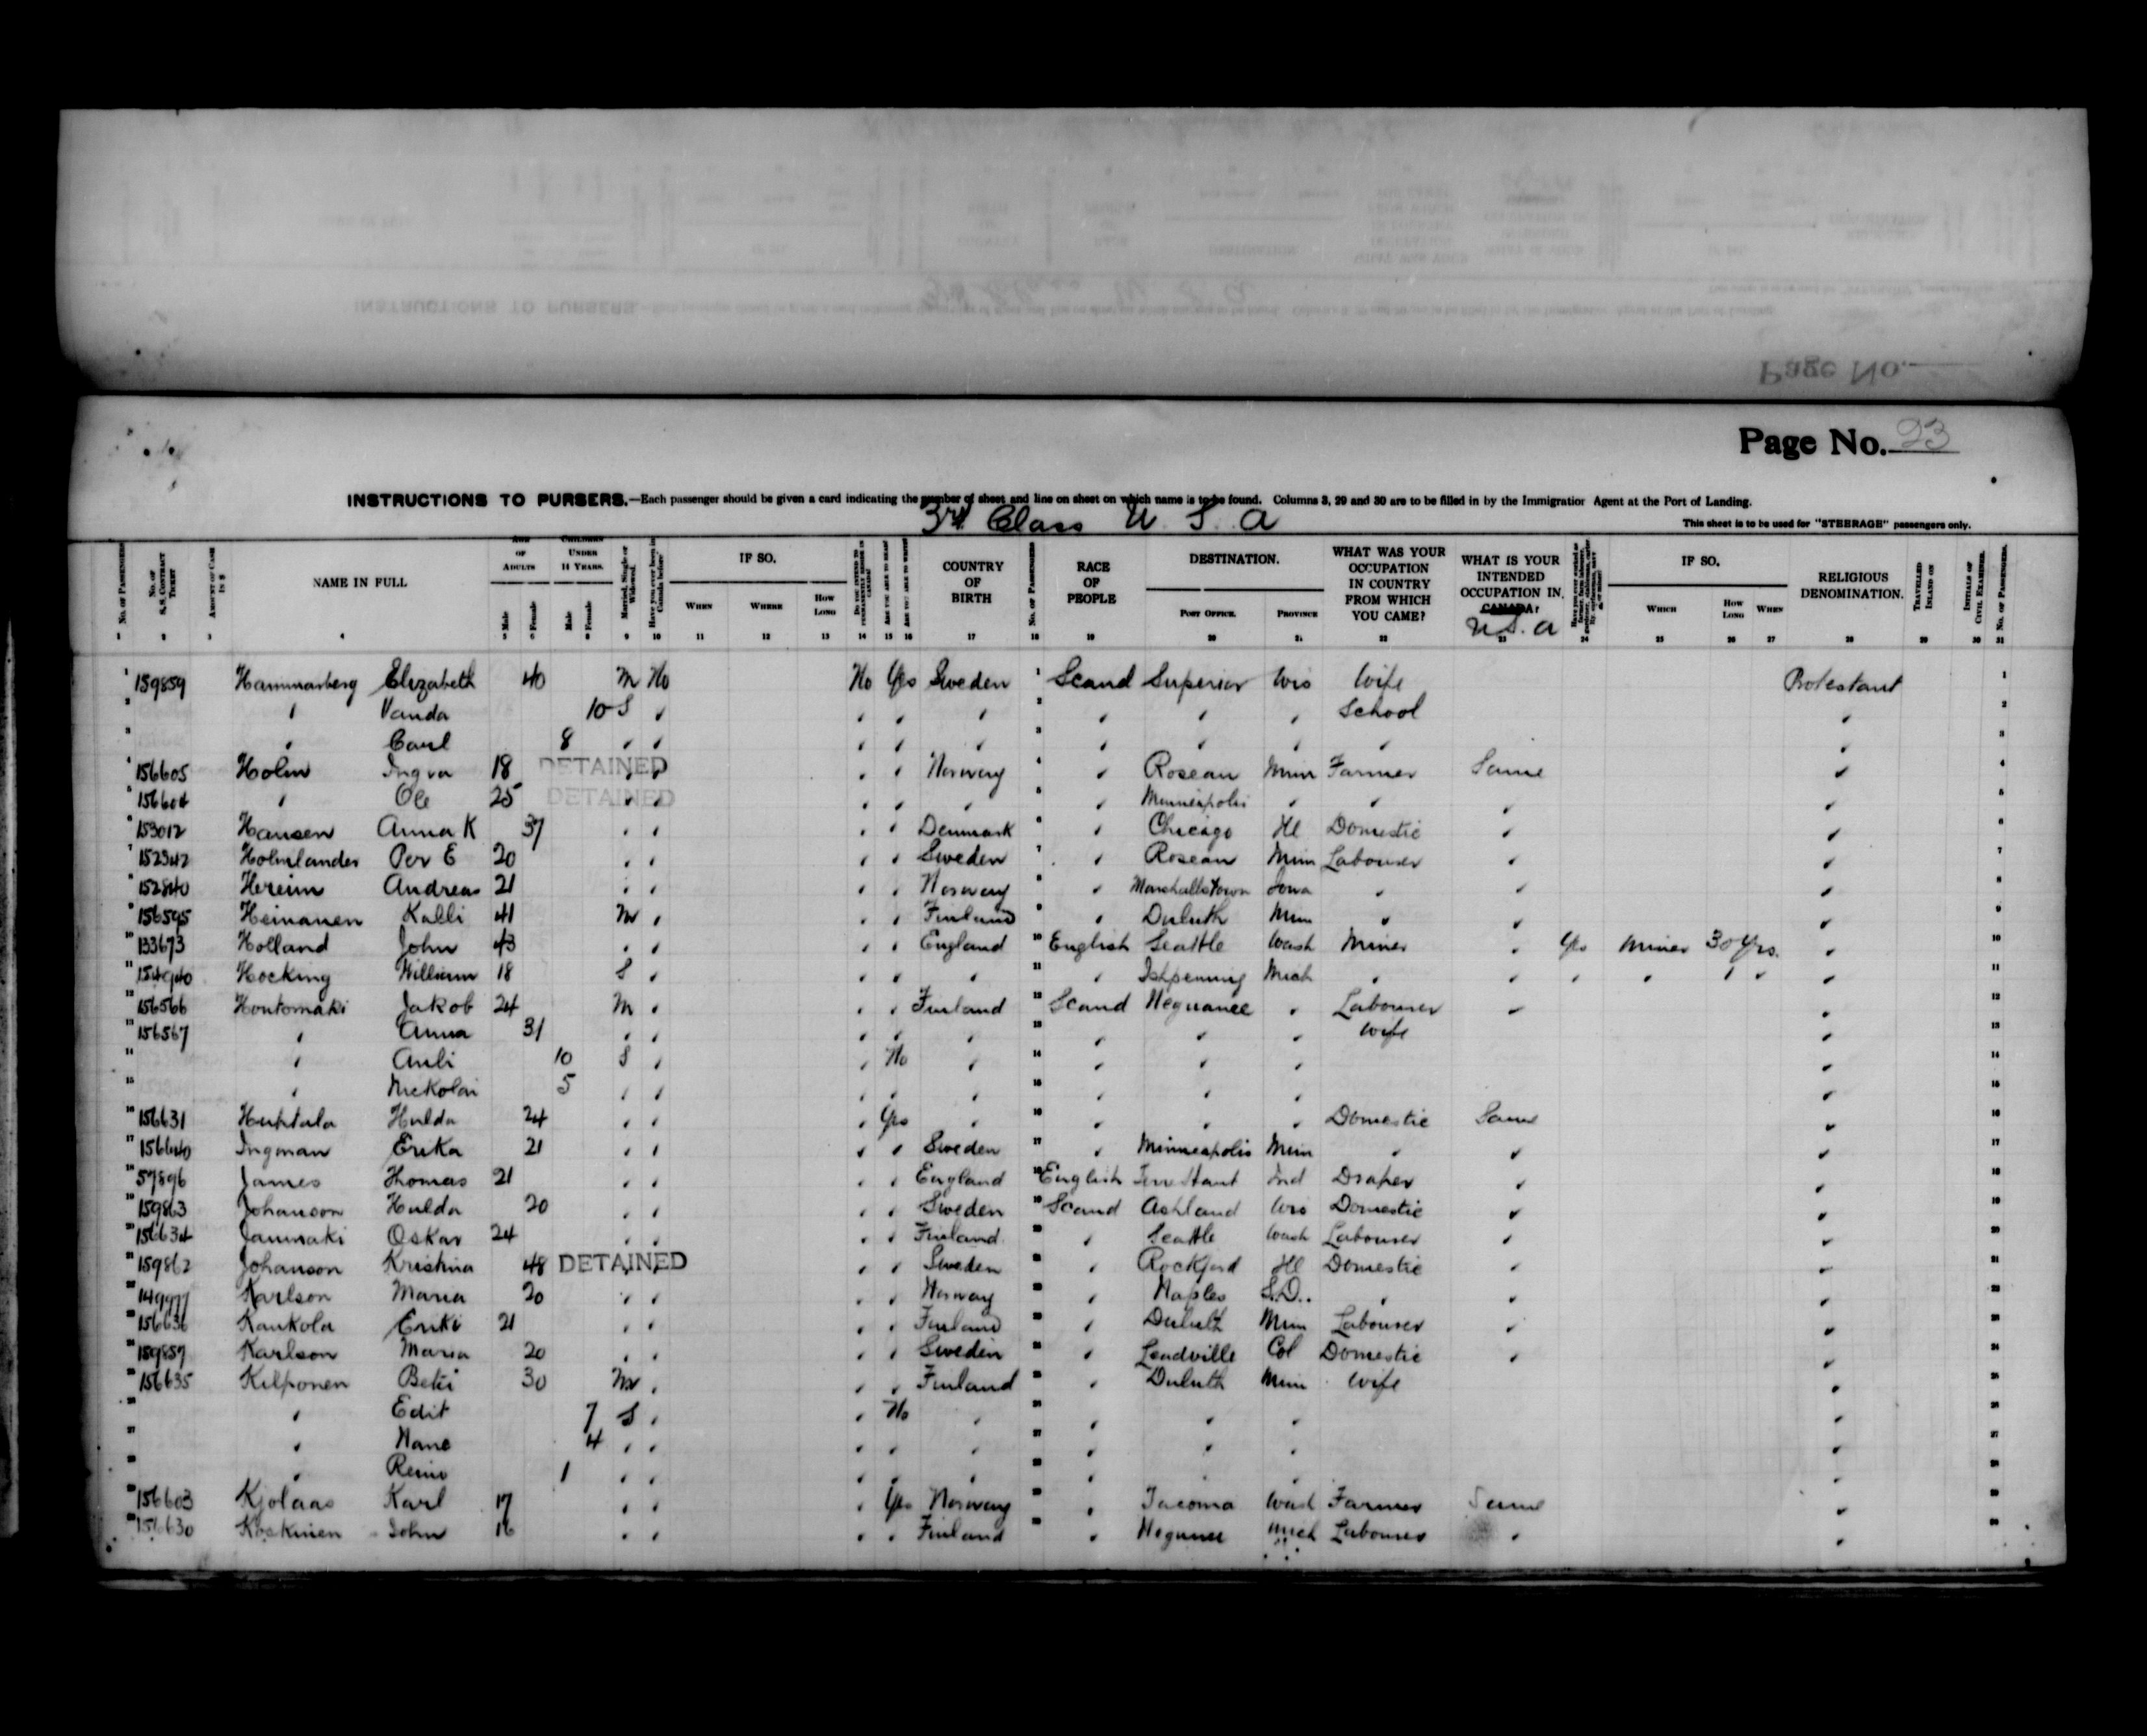 Page No. 23
INSTRUCTIONS TO PURSERS.—Each passenger should be given a card indicating the number of sheet and line on sheet on which name is to be found. Columns 3, 29 and 30 are to be filled in by the Immigration Agent at the Port of Landing.
3rd Class U S A
This sheet is to be used for "STEERAGE" passengers only.
No. of Passengers No. of S.S. Contract Ticket Amount of Cash in $ NAME IN FULL Age of Adults Male Female Children Under 14 Years. Male Female Married, Single or Widowed. Have you ever been in Canada before? IF SO. When Where How Long Do you intend to permanently reside in Canada? Are you able to read? Are you able to write? COUNTRY OF BIRTH No. of Passengers RACE OF PEOPLE DESTINATION. Post Office. Province WHAT WAS YOUR OCCUPATION IN COUNTRY FROM WHICH YOU CAME? WHAT IS YOUR INTENDED OCCUPATION IN CANADA? U.S.A IF SO. Which How Long When RELIGIOUS DENOMINATION. Travelled Inland on Initials of Civil Examiner. No. of Passengers.
1 159859 Hammarberg Elizabeth 40 M No No Yes Sweden 1 Scand Superior Wis Wife Protestant 1
2 " Vanda 10 S " " " " 2 " " " School " 2
3 " Carl 8 " " " " " 3 " " " " " 3
4 156605 Holm Ingva 18 DETAINED " " " " Norway 4 " Roseau Minn Farmer Same " 4
5 156604 " Ole 25 DETAINED " " " " " 5 " Minneapolis " " " " 5
6 153012 Hansen Anna K 37 " " " " Denmark 6 " Chicago Ill Domestic " " 6
7 152342 Holmlander Per E 20 " " " " Sweden 7 " Roseau Minn Labourer " " 7
8 152840 Hereim Andreas 21 " " " " Norway 8 " Marshallstown Iowa " " " 8
9 156595 Heinanen Kalli 41 M " " " Finland 9 " Duluth Minn " " " 9
10 133673 Holland John 43 " " " " England 10 English Seattle Wash Miner " Yes Miner 30 Yrs. " 10
11 Hocking William 18 S " " " " 11 " Ishpeming Mich " " " " " " " 11
12 156566 Hontomaki Jakob 24 M " " " Finland 12 Scand Negaunee " Labourer " " 12
13 156567 " Anna 31 " " " " " 13 " " " Wife " 13
14 " Anli 10 S " " No " 14 " " " " 14
15 " Nickolai 5 " " " " " 15 " " " " 15
16 156631 Huhtala Hulda 24 " " " Yes " 16 " " " Domestic Same " 16
17 156640 Ingman Erika 21 " " " " Sweden 17 " Minneapolis Minn " " " 17
18 57896 James Thomas 21 " " " " England 18 English Terre Haut Ind Draper " " 18
19 159863 Johanson Hulda 20 " " " " Sweden 19 Scand Ashland Wis Domestic " " 19
20 156634 Jaumaki Oskar 24 " " " " Finland 20 " Seattle Wash Labourer " " 20
21 159862 Johanson Kristina 48 DETAINED " " " " Sweden 21 " Rockford Ill Domestic " " 21
22 149977 Karlson Maria 20 " " " " Norway 22 " Naples S.D. " " " 22
23 156636 Kaukola Eriki 21 " " " " Finland 23 " Duluth Minn Labourer " " 23
24 159857 Karlson Maria 20 " " " " Sweden 24 " Leadville Col Domestic " " 24
25 156635 Kilponen Beti 30 M " " " Finland 25 " Duluth Minn Wife " 25
26 " Edit 7 S " " No " 26 " " " " 26
27 " Nane 4 " " " " " 27 " " " " 27
28 " Reino 1 " " " " " 28 " " " " 28
29 156603 Kjolaas Karl 17 " " " Yes Norway 29 " Tacoma Wash Farmer Same " 29
30 156630 Koskinen John 16 " " " " Finland 30 " Negaunee Mich Labourer " " 30